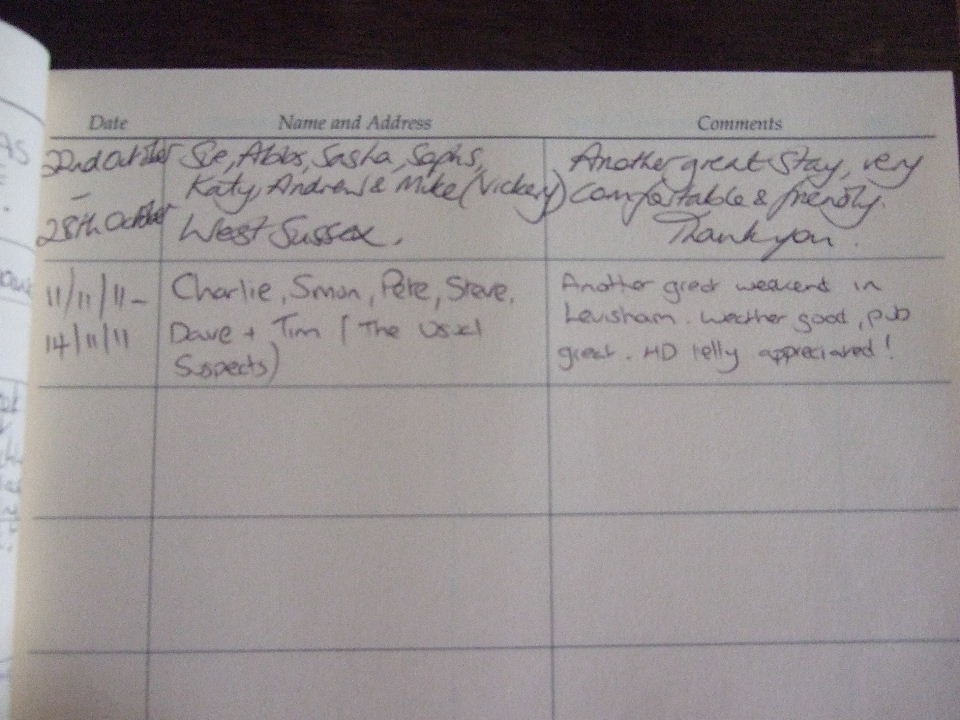 Date Name and Address Comments
22nd October Sue, Abbs, Sasha, Sophs, Another great stay, very
– Katy, Andrew & Mike (Vickery) comfortable & friendly.
28th October West Sussex. Thank you.
11/11/11– Charlie, Simon, Pete, Steve, Another great weekend in
14/11/11 Dave + Tim (The Usual Levisham. Weather good, pub
Suspects) great. HD telly appreciated!
AS